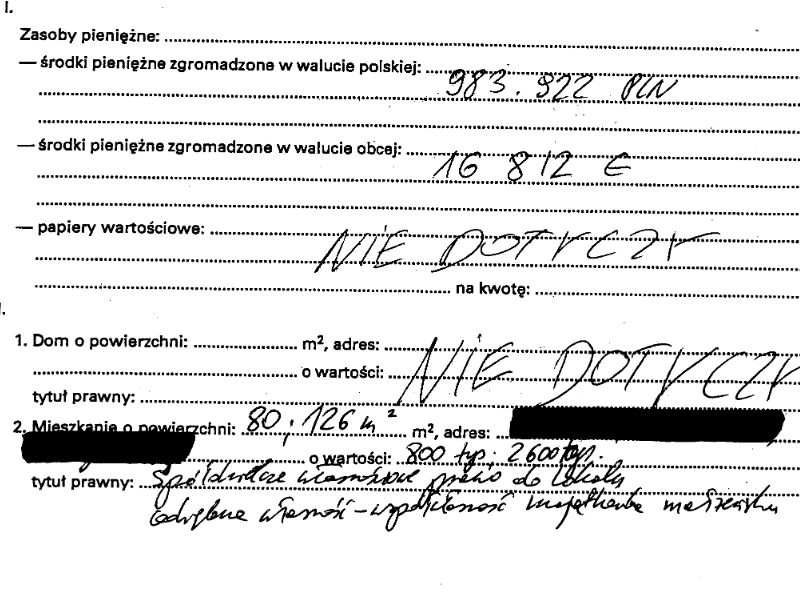 I.
Zasoby pieniężne:
— środki pieniężne zgromadzone w walucie polskiej:
983.922 PLN
— środki pieniężne zgromadzone w walucie obcej:
16 812 €
— papiery wartościowe:
NIE DOTYCZY
na kwotę:
1. Dom o powierzchni: m², adres: NIE DOTYCZY
o wartości:
tytuł prawny:
2. Mieszkanie o powierzchni: 80; 126 m² m², adres:
o wartości: 800 tys; 2600 tys.
tytuł prawny: Spółdzielcze własnościowe prawo do lokalu
odrębna własność – współwłasność majątkowa małżeńska